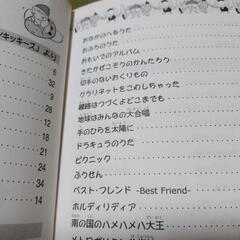 ッキッキーズ」より
6
5
32
22
24
28
40
34
14
おなかのへるうた
おふろのうた
おもいでのアルバム
きたかぜこぞうのかんたろう
切手のないおくりもの
クラリネットをこわしちゃった
線路はつづくよどこまでも
地球はみんなの大合唱
手のひらを太陽に
ドラキュラのうた
ピクニック
ふうせん
ベスト・フレンド -Best Friend-
ホルディリディア
南の国のハメハメハ大王